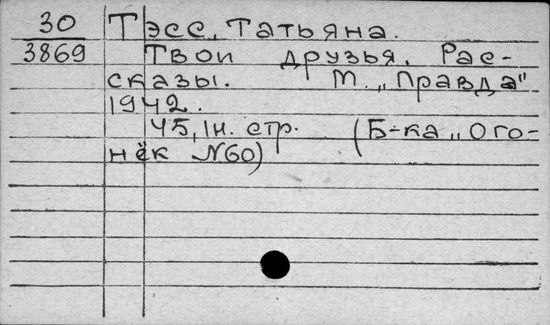 30 Тэсс, Татьяна.
3869 Твои друзья. Рас-
сказы. М. „Правда"
1942.
45, 1н. стр. (Б-ка „Ого-
нёк N60)